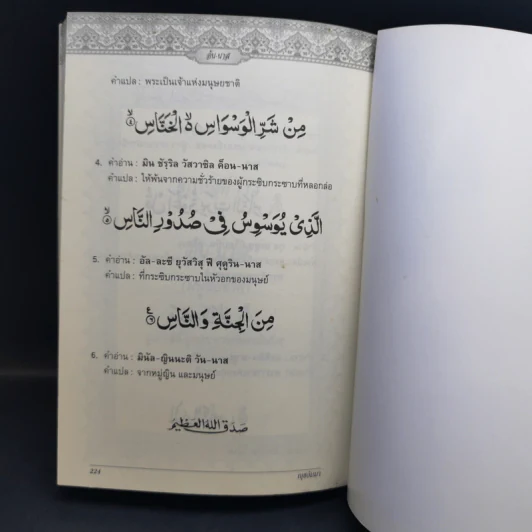 อัน-นาส
คำแปล : พระเป็นเจ้าแห่งมนุษยชาติ
مِنْ شَرِّ الْوَسْوَاسِ الْخَنَّاسِ ﴿٤﴾
4. คำอ่าน : มิน ชัรฺริล วัสวาซิล ค็อน-นาส
คำแปล : ให้พ้นจากความชั่วร้ายของผู้กระซิบกระซาบที่หลอกล่อ
الَّذِىْ يُوَسْوِسُ فِىْ صُدُوْرِ النَّاسِ ﴿٥﴾
5. คำอ่าน : อัล-ละซี ยุวัสวิสุ ฟี ศุดูริน-นาส
คำแปล : ที่กระซิบกระซาบในหัวอกของมนุษย์
مِنَ الْجِنَّةِ وَالنَّاسِ ﴿٦﴾
6. คำอ่าน : มินัล-ญินนะติ วัน-นาส
คำแปล : จากหมู่ญิน และมนุษย์
صَدَقَ اللهُ الْعَظِيْمُ
224